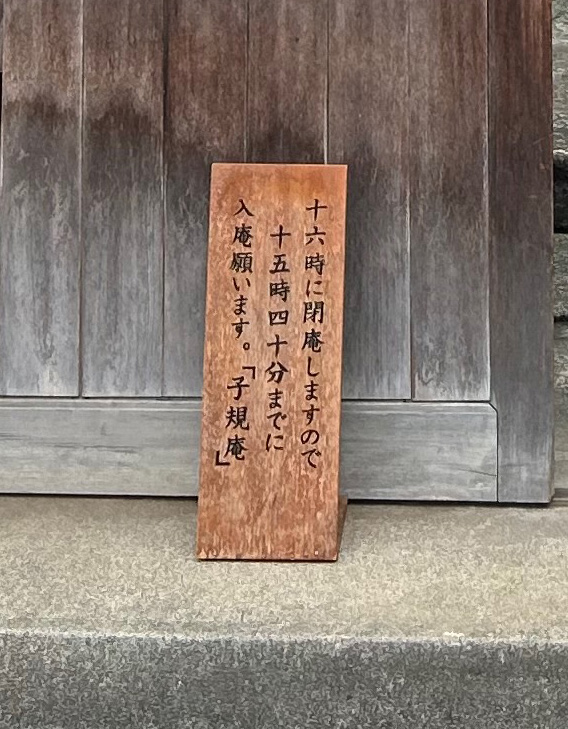 十六時に閉庵しますので
十五時四十分までに
入庵願います。「子規庵」